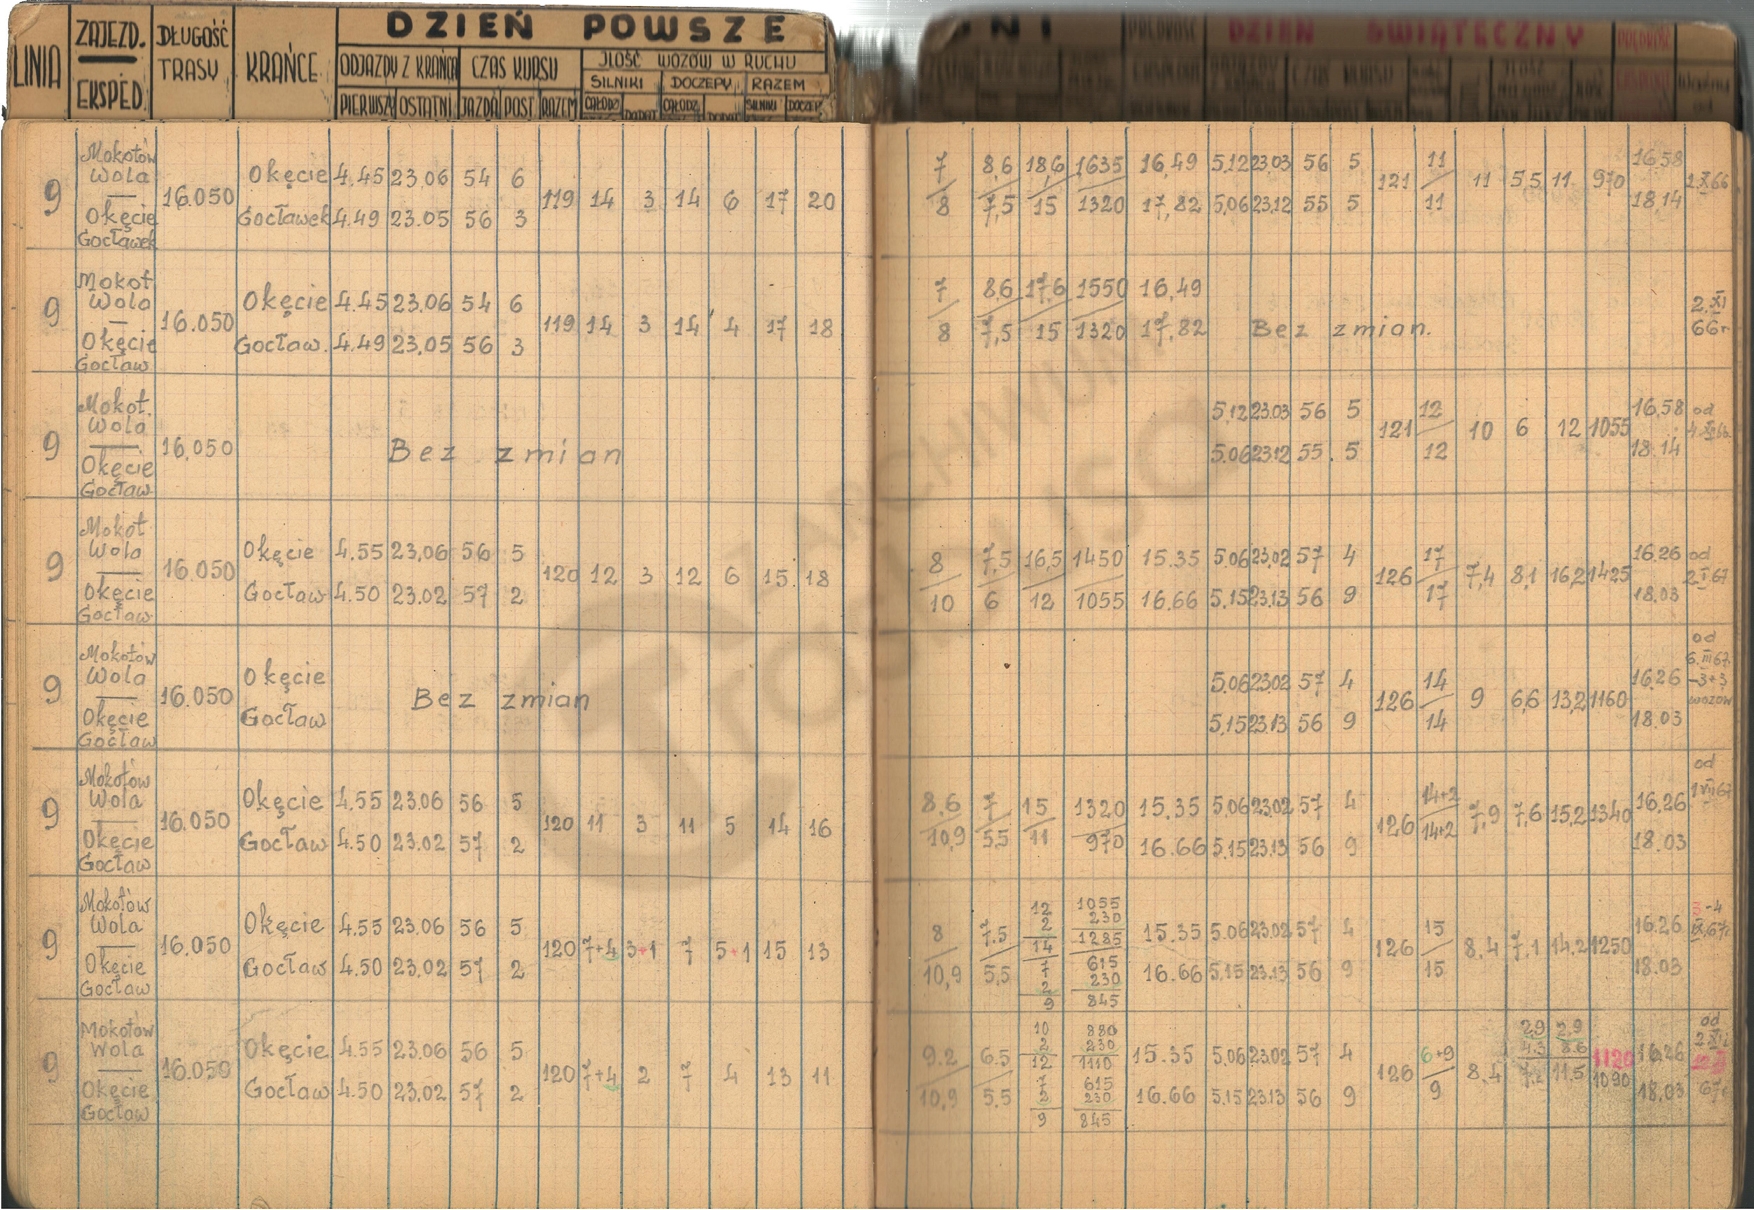 LINIA ZAJEZD. EKSPED. DŁUGOŚĆ TRASY KRAŃCE
DZIEŃ POWSZE DNI
ODJAZDY Z KRAŃCA CZAS KURSU ILOŚĆ WOZÓW W RUCHU
SILNIKI DOCZEPY RAZEM
PIERWSZY OSTATNI JAZDA POST. RAZEM CAŁODZ. DODAT. CAŁODZ. DODAT. SILNIKI DOCZEP.
PRĘDKOŚĆ DZIEŃ ŚWIĄTECZNY PRĘDKOŚĆ
CZAS KURSU
Mokotów
Wola Okęcie 4.45 23.06 54 6 7 8,6 18,6 1635 16,49 5.12 23.03 56 5 11 16.58
9 16.050 119 14 3 14 6 17 20 121 11 5,5 11 970 1.X.66
Okęcie Gocławek 4.49 23.05 56 3 8 7,5 15 1320 17,82 5.06 23.12 55 5 11 18.14
Gocławek
Mokot
Wola Okęcie 4.45 23.06 54 6 7 8,6 17,6 1550 16,49 2.XI
9 16.050 119 14 3 14 4 17 18 66r
Okęcie Gocław. 4.49 23.05 56 3 8 7,5 15 1320 17,82 Bez zmian.
Gocław
Mokot.
Wola 5.12 23.03 56 5 12 16,58 od
9 16.050 Bez zmian 121 10 6 12 1055
Okęcie 5.06 23.12 55 5 12 18.14
Gocław
Mokot
Wola Okęcie 4.55 23.06 56 5 8 7,5 16,5 1450 15.35 5.06 23.02 57 4 17 16.26 od
9 16.050 120 12 3 12 6 15 18 126 7,4 8,1 16,2 1425 2.I.67
Okęcie Gocław 4.50 23.02 57 2 10 6 12 1055 16.66 5.15 23.13 56 9 17 18.03
Gocław
Mokotów od
Wola Okęcie 5.06 23.02 57 4 14 16.26 6.III67.
9 16.050 Bez zmian 126 9 6,6 13,2 1160 -3+3
Okęcie Gocław 5.15 23.13 56 9 14 18.03 wozów
Gocław
Mokotów od
Wola Okęcie 4.55 23.06 56 5 8,6 7 15 1320 15.35 5.06 23.02 57 4 14+2 16.26 1VII67
9 16.050 120 11 3 11 5 14 16 126 7,9 7,6 15,2 1340
Okęcie Gocław 4.50 23.02 57 2 10,9 5,5 11 970 16.66 5.15 23.13 56 9 14+2 18.03
Gocław
Mokotów 12 1055
Wola Okęcie 4.55 23.06 56 5 8 7.5 2 230 15.35 5.06 23.02 57 4 15 16.26
14 1285
9 16.050 120 7+4 3+1 7 5+1 15 13 126 8,4 7,1 14,2 1250
Okęcie Gocław 4.50 23.02 57 2 10,9 5,5 7 615 16.66 5.15 23.13 56 9 15 18.03
Gocław 2 230
9 845
Mokotów 10 880 2,9 2,9 od
Wola Okęcie 4.55 23.06 56 5 9.2 6.5 2 230 15.35 5.06 23.02 57 4 6+9 4,3 8,6 1120 16.26
12 1110
9 16.050 120 7+4 2 7 4 13 11 126 8,4 7,2 11,5 1090
Okęcie Gocław 4.50 23.02 57 2 10,9 5.5 7 615 16.66 5.15 23.13 56 9 9 18.03 67r
Gocław 2 230
9 845
T ARCHIWUM